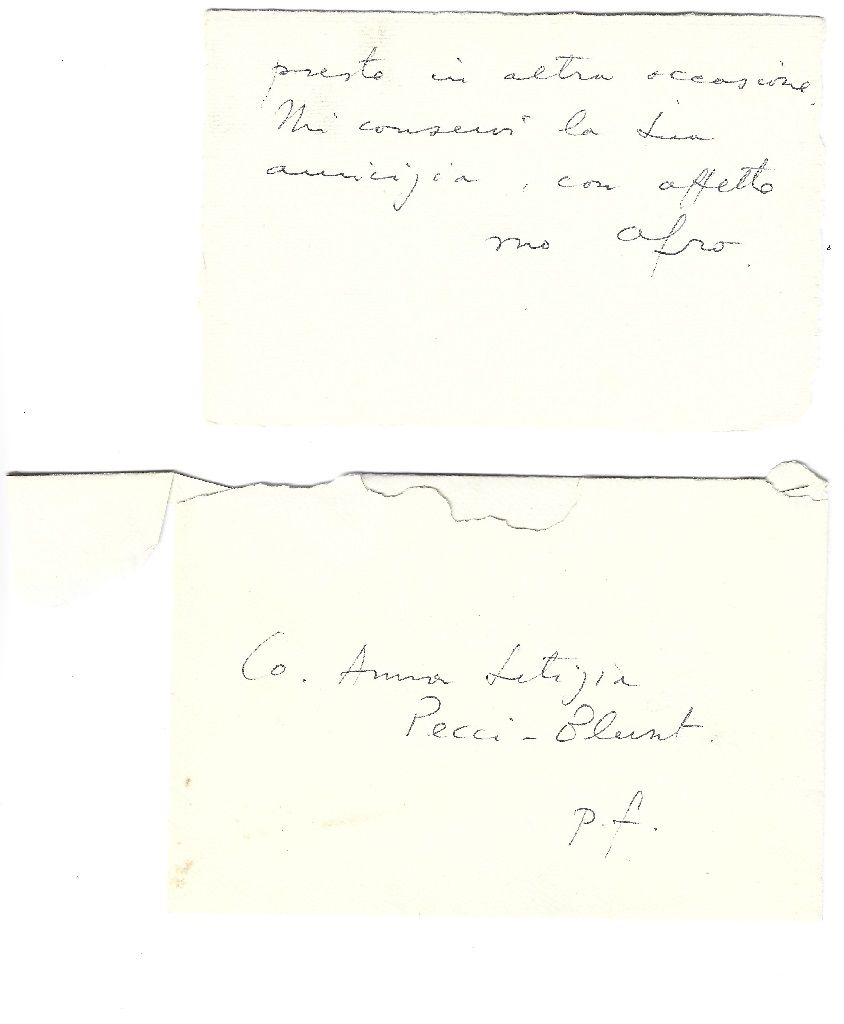 presto in altra occasione.
Mi conservi la Sua
amicizia, con affetto
suo Afro.
Co. Anna Letizia
Pecci - Blunt.
p.f.